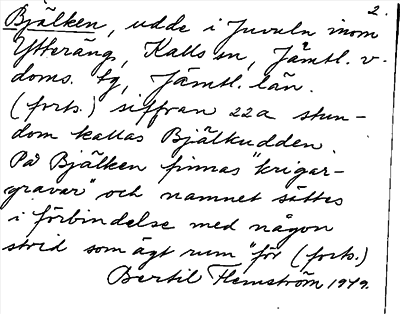 2.
Bjälken, udde i Juveln inom
Ytteräng, Kalls sn, Jämtl. v.
doms. tg, Jämtl. län.
(forts.) siffran 22a stun-
dom kallas Bjälkudden.
På Bjälken finnas "krigar-
gravar" och namnet sättes
i förbindelse med någon
strid som ägt rum "för (forts.)
Bertil Flemström 1949.